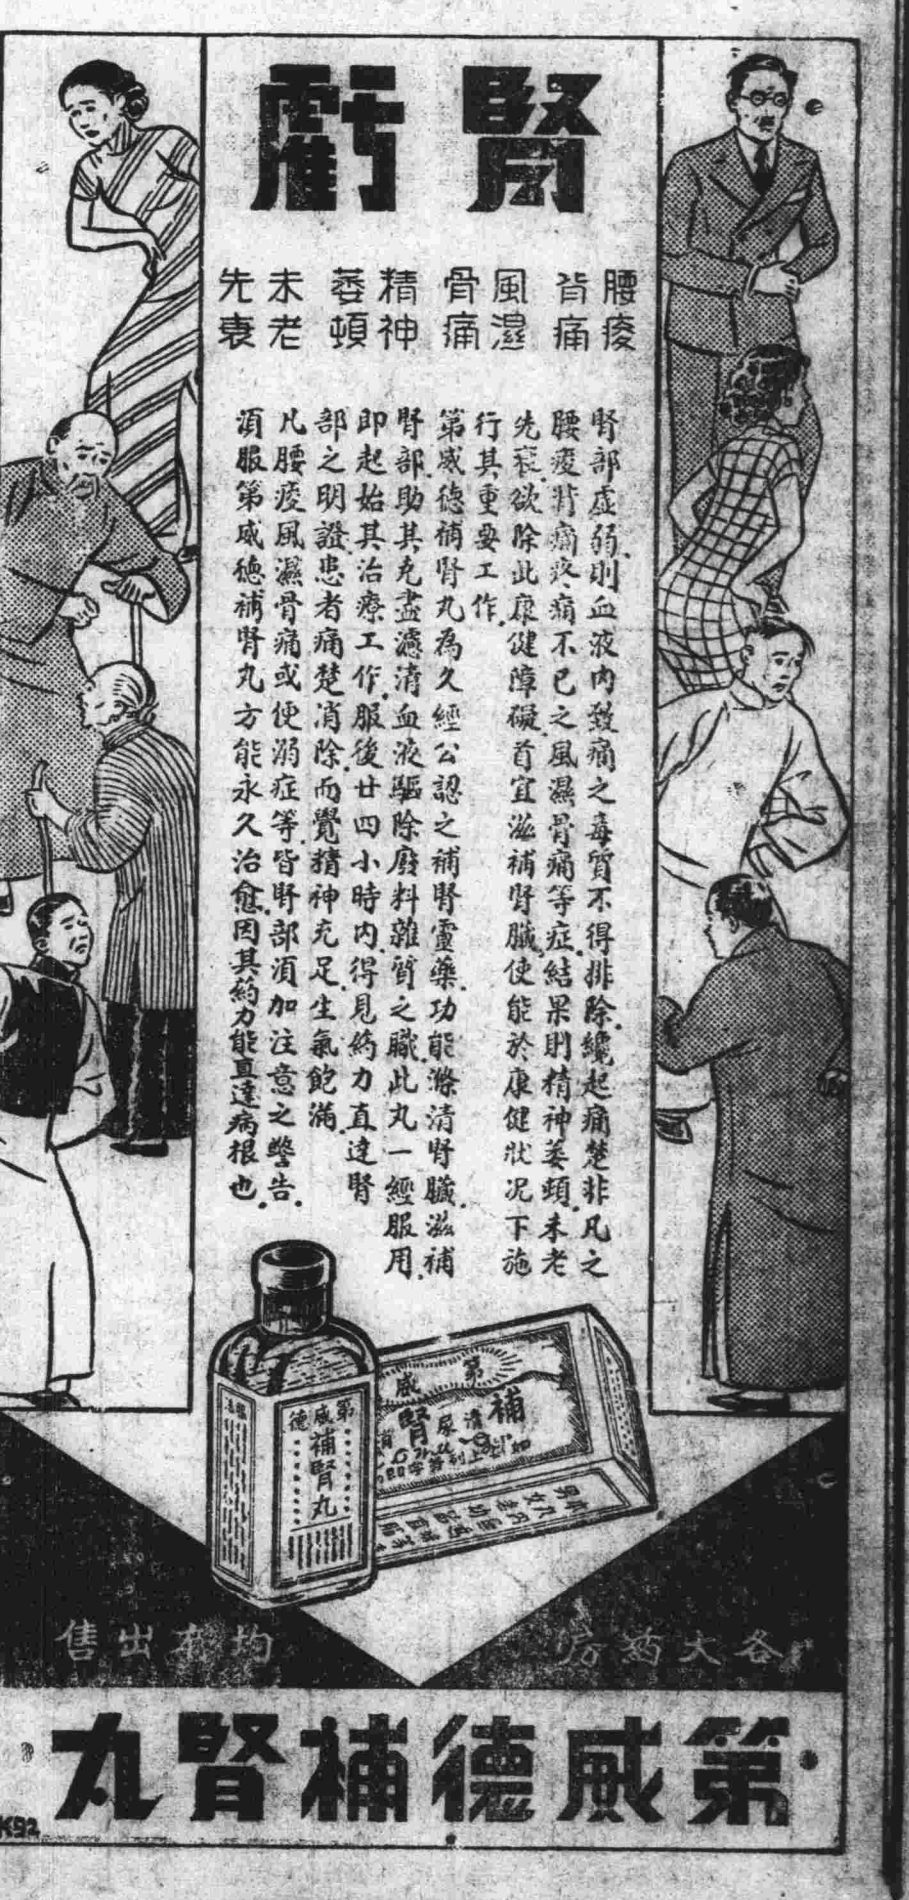 腎虧
腰痠背痛
風濕骨痛
精神萎頓
未老先衰
腎部虛弱、則血液內發痛之毒質不得排除、纔起痛楚非凡之
腰痠背痛疼痛不已之風濕骨痛等症、結果則精神萎頓、未老
先衰、欲除此康健障礙、首宜滋補腎臟、使能於康健狀況下施
行其重要工作、
第威德補腎丸為久經公認之補腎靈藥、功能滌清腎臟、滋補
腎部、助其充盡濾清血液驅除廢料雜質之職、此丸一經服用、
即起始其治療工作、服後廿四小時內、得見药力直達腎
部之明證、患者痛楚消除、而覺精神充足、生氣飽滿、
凡腰痠風濕骨痛或便溺症等、皆腎部須加注意之警告、
須服第威德補腎丸方能永久治愈、因其药力能直達病根也、
第威德
補腎丸
第威
補腎
清尿
各大药房
均有出售
第威德補腎丸
K92